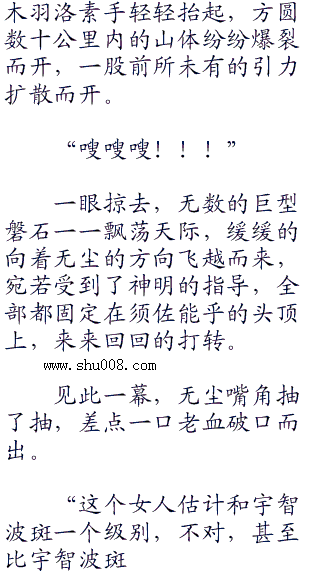 木羽洛素手轻轻抬起，方圆
数十公里内的山体纷纷爆裂
而开，一股前所未有的引力
扩散而开。
“嗖嗖嗖！！！”
一眼掠去，无数的巨型
磐石一一飘荡天际，缓缓的
向着无尘的方向飞越而来，
宛若受到了神明的指导，全
部都固定在须佐能乎的头顶
上，来来回回的打转。
www.shu008.com
见此一幕，无尘嘴角抽
了抽，差点一口老血破口而
出。
“这个女人估计和宇智
波斑一个级别，不对，甚至
比宇智波斑